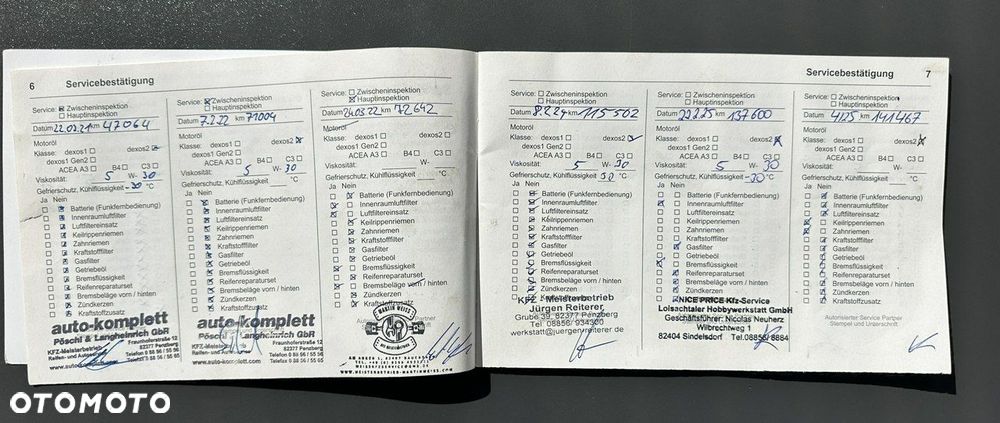 6 Servicebestätigung
Service: Zwischeninspektion
Hauptinspektion
Datum 22.02.21 km 47064
Motoröl
Klasse: dexos1 dexos2
dexos1 Gen2
ACEA A3 B4 C3
Viskosität: 5 W- 30
Gefrierschutz, Kühlflüssigkeit -30 °C
Ja Nein
Batterie (Funkfernbedienung)
Innenraumluftfilter
Luftfiltereinsatz
Keilrippenriemen
Zahnriemen
Kraftstofffilter
Gasfilter
Getriebeöl
Bremsflüssigkeit
Reifenreparaturset
Bremsbeläge vorn / hinten
Zündkerzen
Kraftstoffzusatz
auto-komplett
Pöschl & Langheinrich GbR
KFZ-Meisterbetrieb
Fraunhoferstraße 12
82377 Penzberg
Service: Zwischeninspektion
Hauptinspektion
Datum 7.2.22 km 71004
Motoröl
Klasse: dexos1 dexos2
dexos1 Gen2
ACEA A3 B4 C3
Viskosität: 5 W- 30
Gefrierschutz, Kühlflüssigkeit °C
Ja Nein
Batterie (Funkfernbedienung)
Innenraumluftfilter
Luftfiltereinsatz
Keilrippenriemen
Zahnriemen
Kraftstofffilter
Gasfilter
Getriebeöl
Bremsflüssigkeit
Reifenreparaturset
Bremsbeläge vorn / hinten
Zündkerzen
Kraftstoffzusatz
auto-komplett
Pöschl & Langheinrich GbR
KFZ-Meisterbetrieb
Fraunhoferstraße 12
82377 Penzberg
www.auto-komplett.com
Service: Zwischeninspektion
Hauptinspektion
Datum 24.03.22 km 72642
Motoröl
Klasse: dexos1 dexos2
dexos1 Gen2
ACEA A3 B4 C3
Viskosität: W-
Gefrierschutz, Kühlflüssigkeit °C
Ja Nein
Batterie (Funkfernbedienung)
Innenraumluftfilter
Luftfiltereinsatz
Keilrippenriemen
Zahnriemen
Kraftstofffilter
Gasfilter
Getriebeöl
Bremsflüssigkeit
Reifenreparaturset
Bremsbeläge vorn / hinten
Zündkerzen
Kraftstoffzusatz
MARTIN WEISS
WWW.MEISTERBETRIEB-MARTINWEISS.COM
Servicebestätigung 7
Service: Zwischeninspektion
Hauptinspektion
Datum 8.2.24 km 115502
Motoröl
Klasse: dexos1 dexos2
dexos1 Gen2
ACEA A3 B4 C3
Viskosität: 5 W- 30
Gefrierschutz, Kühlflüssigkeit °C
Ja Nein
Batterie (Funkfernbedienung)
Innenraumluftfilter
Luftfiltereinsatz
Keilrippenriemen
Zahnriemen
Kraftstofffilter
Gasfilter
Getriebeöl
Bremsflüssigkeit
Reifenreparaturset
Bremsbeläge vorn / hinten
Zündkerzen
Kraftstoffzusatz
KFZ - Meisterbetrieb
Jürgen Reiterer,
Grube 39, 82377 Penzberg
Tel. 08856/ 934300
werkstatt@juergenreiterer.de
Service: Zwischeninspektion
Hauptinspektion
Datum 22.2.25 km 137600
Motoröl
Klasse: dexos1 dexos2
dexos1 Gen2
ACEA A3 B4 C3
Viskosität: 5 W- 30
Gefrierschutz, Kühlflüssigkeit -30 °C
Ja Nein
Batterie (Funkfernbedienung)
Innenraumluftfilter
Luftfiltereinsatz
Keilrippenriemen
Zahnriemen
Kraftstofffilter
Gasfilter
Getriebeöl
Bremsflüssigkeit
Reifenreparaturset
Bremsbeläge vorn / hinten
Zündkerzen
NICE PRICE Kfz-Service
Loisachtaler Hobbywerkstatt GmbH
Geschäftsführer: Nicolas Neuherz
Wilbrechtweg 1
82404 Sindelsdorf Tel.08856/ 8884
Service: Zwischeninspektion
Hauptinspektion
Datum km 141467
Motoröl
Klasse: dexos1 dexos2
dexos1 Gen2
ACEA A3 B4 C3
Viskosität: W-
Gefrierschutz, Kühlflüssigkeit °C
Ja Nein
Batterie (Funkfernbedienung)
Innenraumluftfilter
Luftfiltereinsatz
Keilrippenriemen
Zahnriemen
Kraftstofffilter
Gasfilter
Getriebeöl
Bremsflüssigkeit
Reifenreparaturset
Bremsbeläge vorn / hinten
Zündkerzen
Kraftstoffzusatz
Autorisierter Service Partner
Stempel und Unterschrift
OTOMOTO